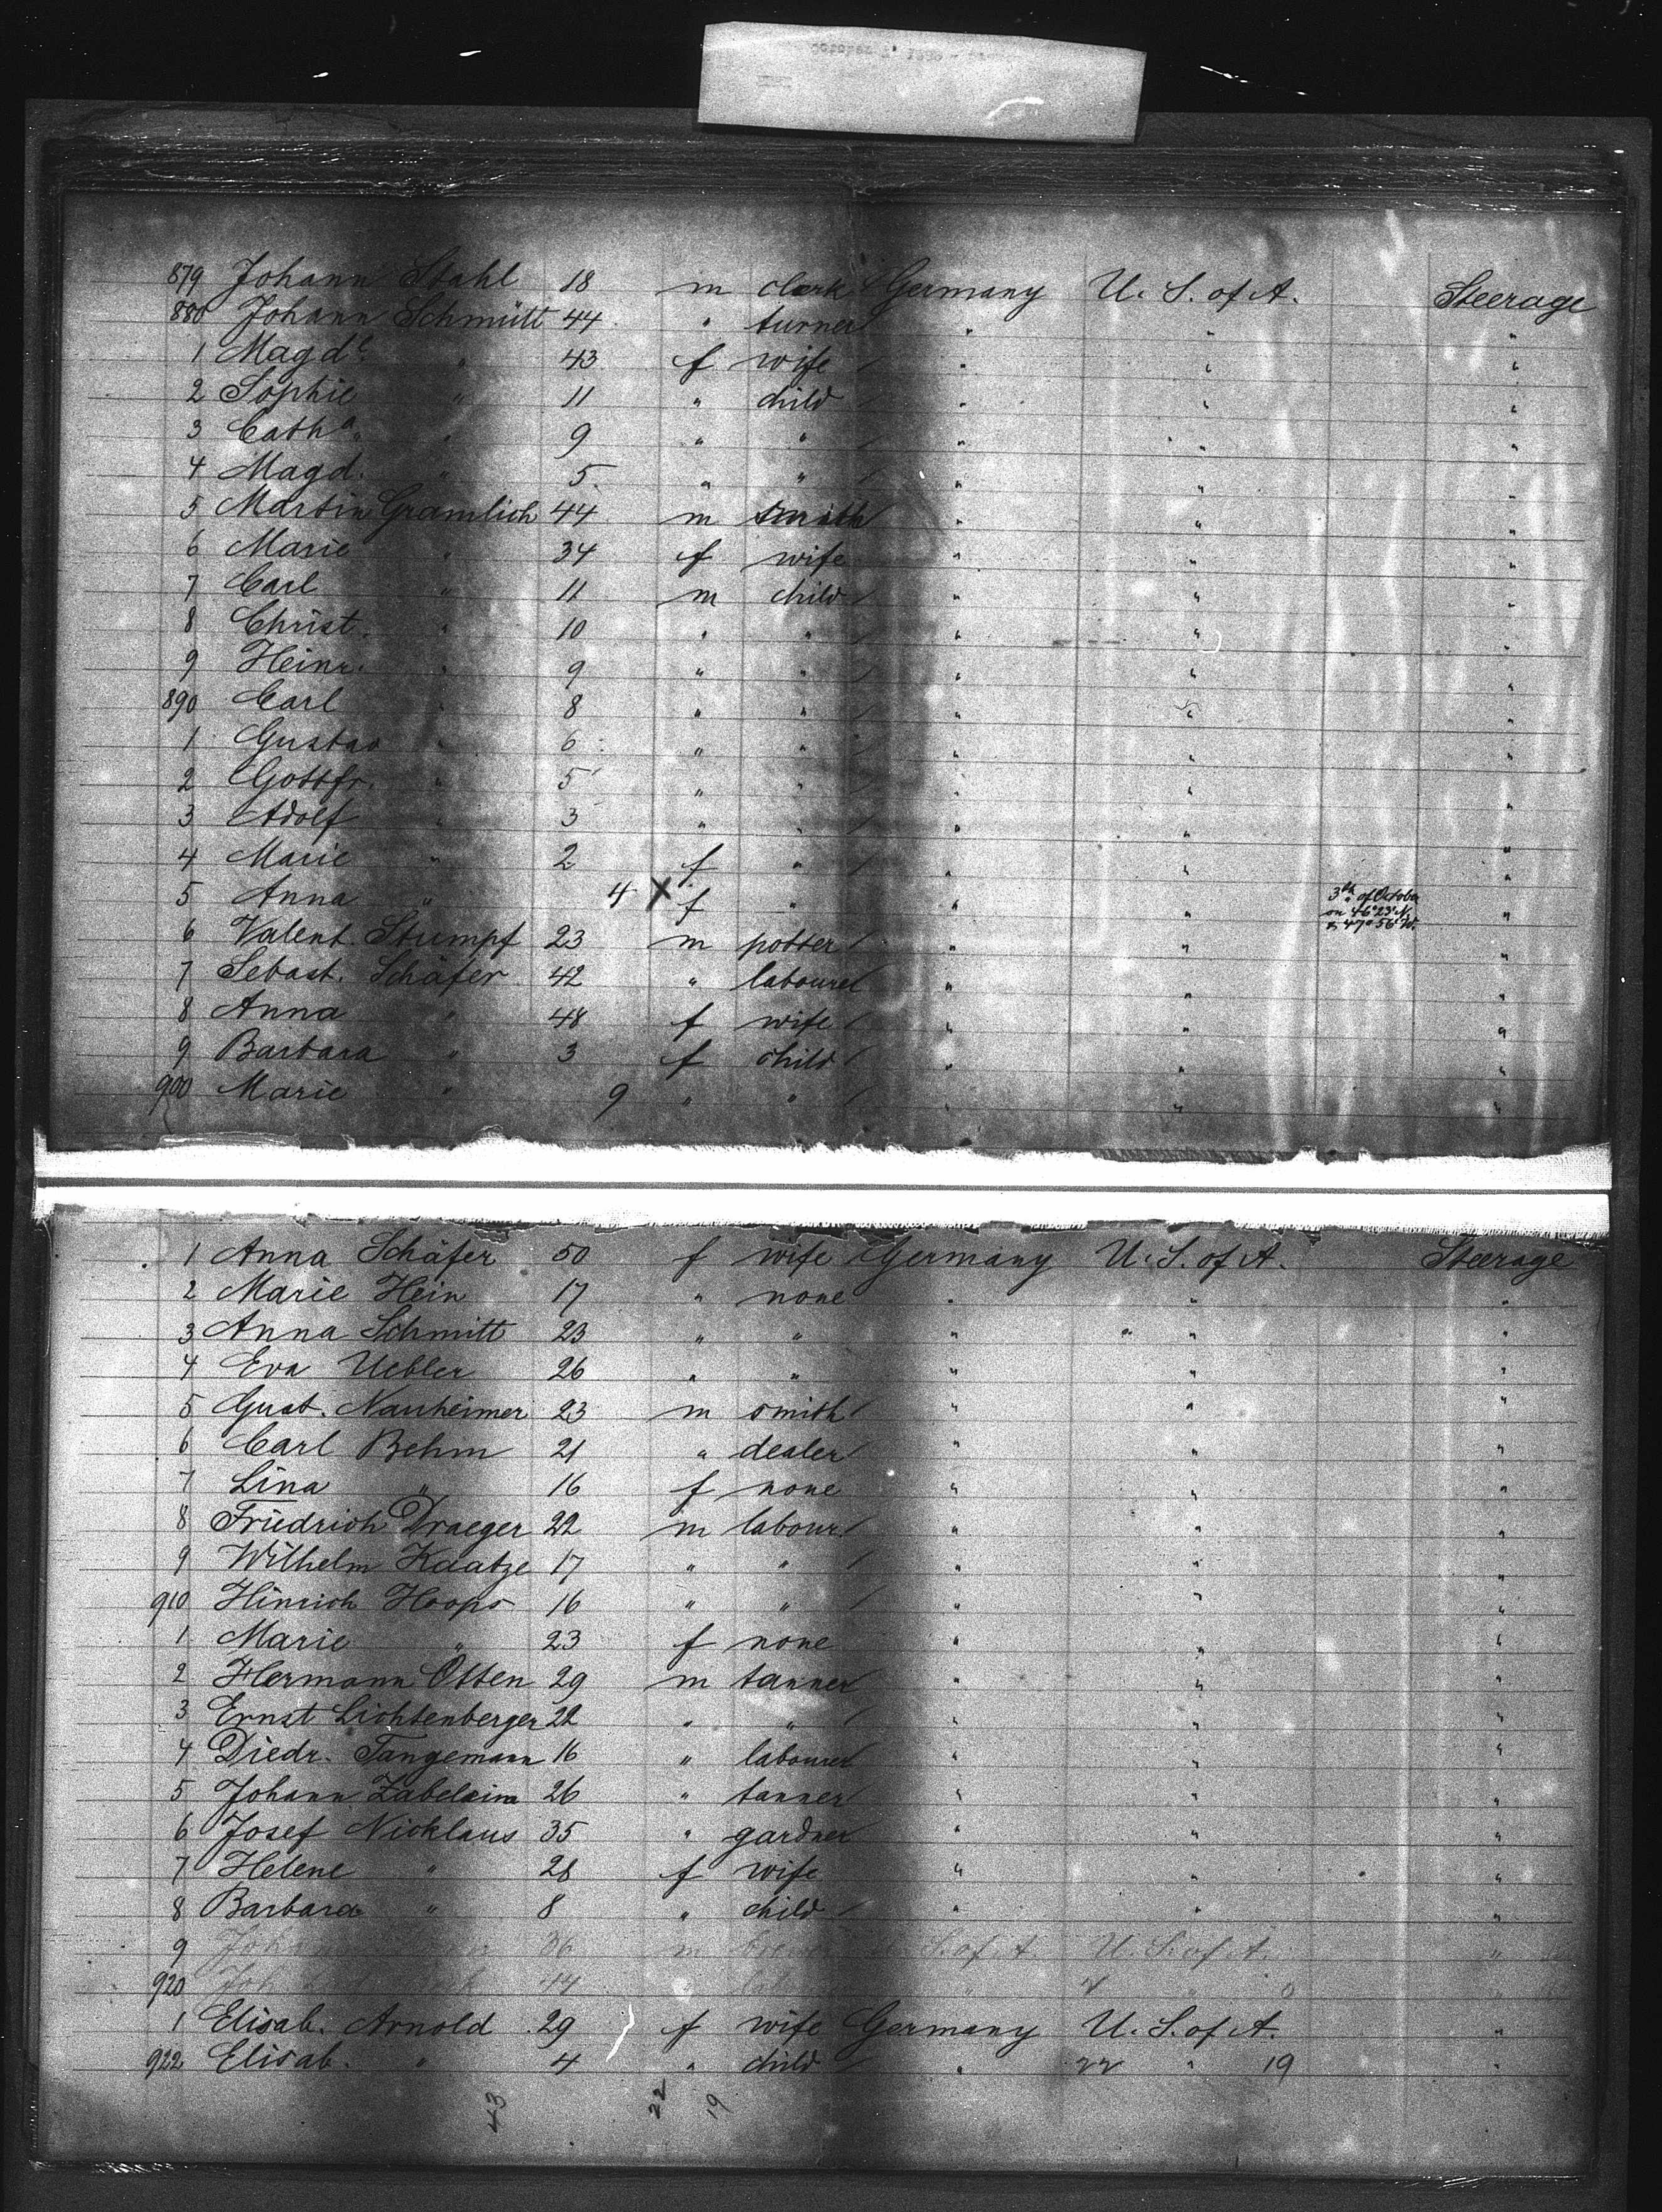 879 Johann Stahl 18 m clerk Germany U. S. of A. Steerage
880 Johann Schmitt 44 " turner " " "
1 Magd<sup>e</sup>. " 43 f wife " " "
2 Sophie " 11 " child " " "
3 Cath<sup>a</sup>. " 9 " " " " "
4 Magd. " 5 " " " " "
5 Martin Gramlich 44 m smith " " "
6 Marie " 34 f wife " " "
7 Carl " 11 m child " " "
8 Christ. " 10 " " " " "
9 Heinr. " 9 " " " " "
890 Carl " 8 " " " " "
1 Gustav " 6 " " " " "
2 Gottfr. " 5 " " " " "
3 Adolf " 3 " " " " "
4 Marie " 2 f " " " "
5 Anna " 4 X f " " " 3th of October on 46°23'N. & 47°56'W. "
6 Valent. Stumpf 23 m potter " " "
7 Sebast. Schäfer 42 " labourer " " "
8 Anna " 48 f wife " " "
9 Barbara " 3 f child " " "
900 Marie " 9 " " " " "
1 Anna Schäfer 50 f wife Germany U. S. of A. Steerage
2 Marie Hein 17 " none " " "
3 Anna Schmitt 23 " " " " "
4 Eva Uebler 26 " " " " "
5 Gust. Nauheimer 23 m smith " " "
6 Carl Behm 21 " dealer " " "
7 Lina " 16 f none " " "
8 Friedrich Draeger 22 m labour. " " "
9 Wilhelm Kaatze 17 " " " " "
910 Hinrich Hoops 16 " " " " "
1 Marie " 23 f none " " "
2 Hermann Otten 29 m tanner " " "
3 Ernst Lichtenberger 22 " " " " "
4 Diedr. Tangemann 16 " labourer " " "
5 Johann Zabelein 26 " tanner " " "
6 Josef Nicklaus 35 " gardner " " "
7 Helene " 28 f wife " " "
8 Barbara " 8 " child " " "
9 36 m U. S. of A. U. S. of A. "
920 Joh. 44 " " "
1 Elisab. Arnold 29 f wife Germany U. S. of A. "
922 Elisab. " 4 " child " 22 " 19 "
43 22 19